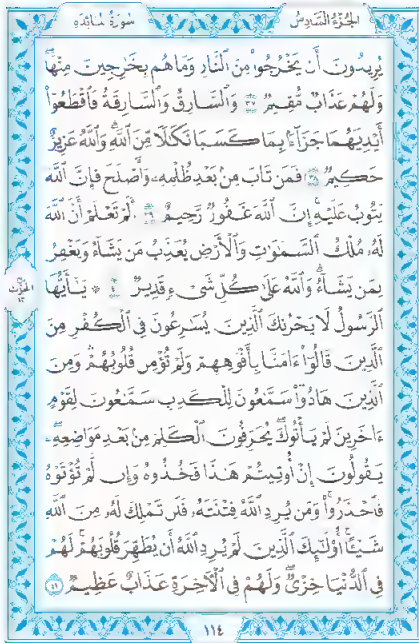 الجزء السادس
سورة مائدة
يُرِيدُونَ أَن يَخْرُجُوا۟ مِنَ ٱلنَّارِ وَمَا هُم بِخَٰرِجِينَ مِنْهَا
وَلَهُمْ عَذَابٌ مُّقِيمٌ ٣٧ وَٱلسَّارِقُ وَٱلسَّارِقَةُ فَٱقْطَعُوٓا۟
أَيْدِيَهُمَا جَزَآءًۢ بِمَا كَسَبَا نَكَٰلًا مِّنَ ٱللَّهِ وَٱللَّهُ عَزِيزٌ
حَكِيمٌ ٣٨ فَمَن تَابَ مِنۢ بَعْدِ ظُلْمِهِۦ وَأَصْلَحَ فَإِنَّ ٱللَّهَ
يَتُوبُ عَلَيْهِ إِنَّ ٱللَّهَ غَفُورٌ رَّحِيمٌ ٣٩ أَلَمْ تَعْلَمْ أَنَّ ٱللَّهَ
لَهُۥ مُلْكُ ٱلسَّمَٰوَٰتِ وَٱلْأَرْضِ يُعَذِّبُ مَن يَشَآءُ وَيَغْفِرُ
لِمَن يَشَآءُ وَٱللَّهُ عَلَىٰ كُلِّ شَىْءٍ قَدِيرٌ ٤٠ ۞ يَٰٓأَيُّهَا
ٱلرَّسُولُ لَا يَحْزُنكَ ٱلَّذِينَ يُسَٰرِعُونَ فِى ٱلْكُفْرِ مِنَ
ٱلَّذِينَ قَالُوٓا۟ ءَامَنَّا بِأَفْوَٰهِهِمْ وَلَمْ تُؤْمِن قُلُوبُهُمْ وَمِنَ
ٱلَّذِينَ هَادُوا۟ سَمَّٰعُونَ لِلْكَذِبِ سَمَّٰعُونَ لِقَوْمٍ
ءَاخَرِينَ لَمْ يَأْتُوكَ يُحَرِّفُونَ ٱلْكَلِمَ مِنۢ بَعْدِ مَوَاضِعِهِۦ
يَقُولُونَ إِنْ أُوتِيتُمْ هَٰذَا فَخُذُوهُ وَإِن لَّمْ تُؤْتَوْهُ
فَٱحْذَرُوا۟ وَمَن يُرِدِ ٱللَّهُ فِتْنَتَهُۥ فَلَن تَمْلِكَ لَهُۥ مِنَ ٱللَّهِ
شَيْـًٔا أُو۟لَٰٓئِكَ ٱلَّذِينَ لَمْ يُرِدِ ٱللَّهُ أَن يُطَهِّرَ قُلُوبَهُمْ لَهُمْ
فِى ٱلدُّنْيَا خِزْىٌ وَلَهُمْ فِى ٱلْءَاخِرَةِ عَذَابٌ عَظِيمٌ ٤١
١١٤